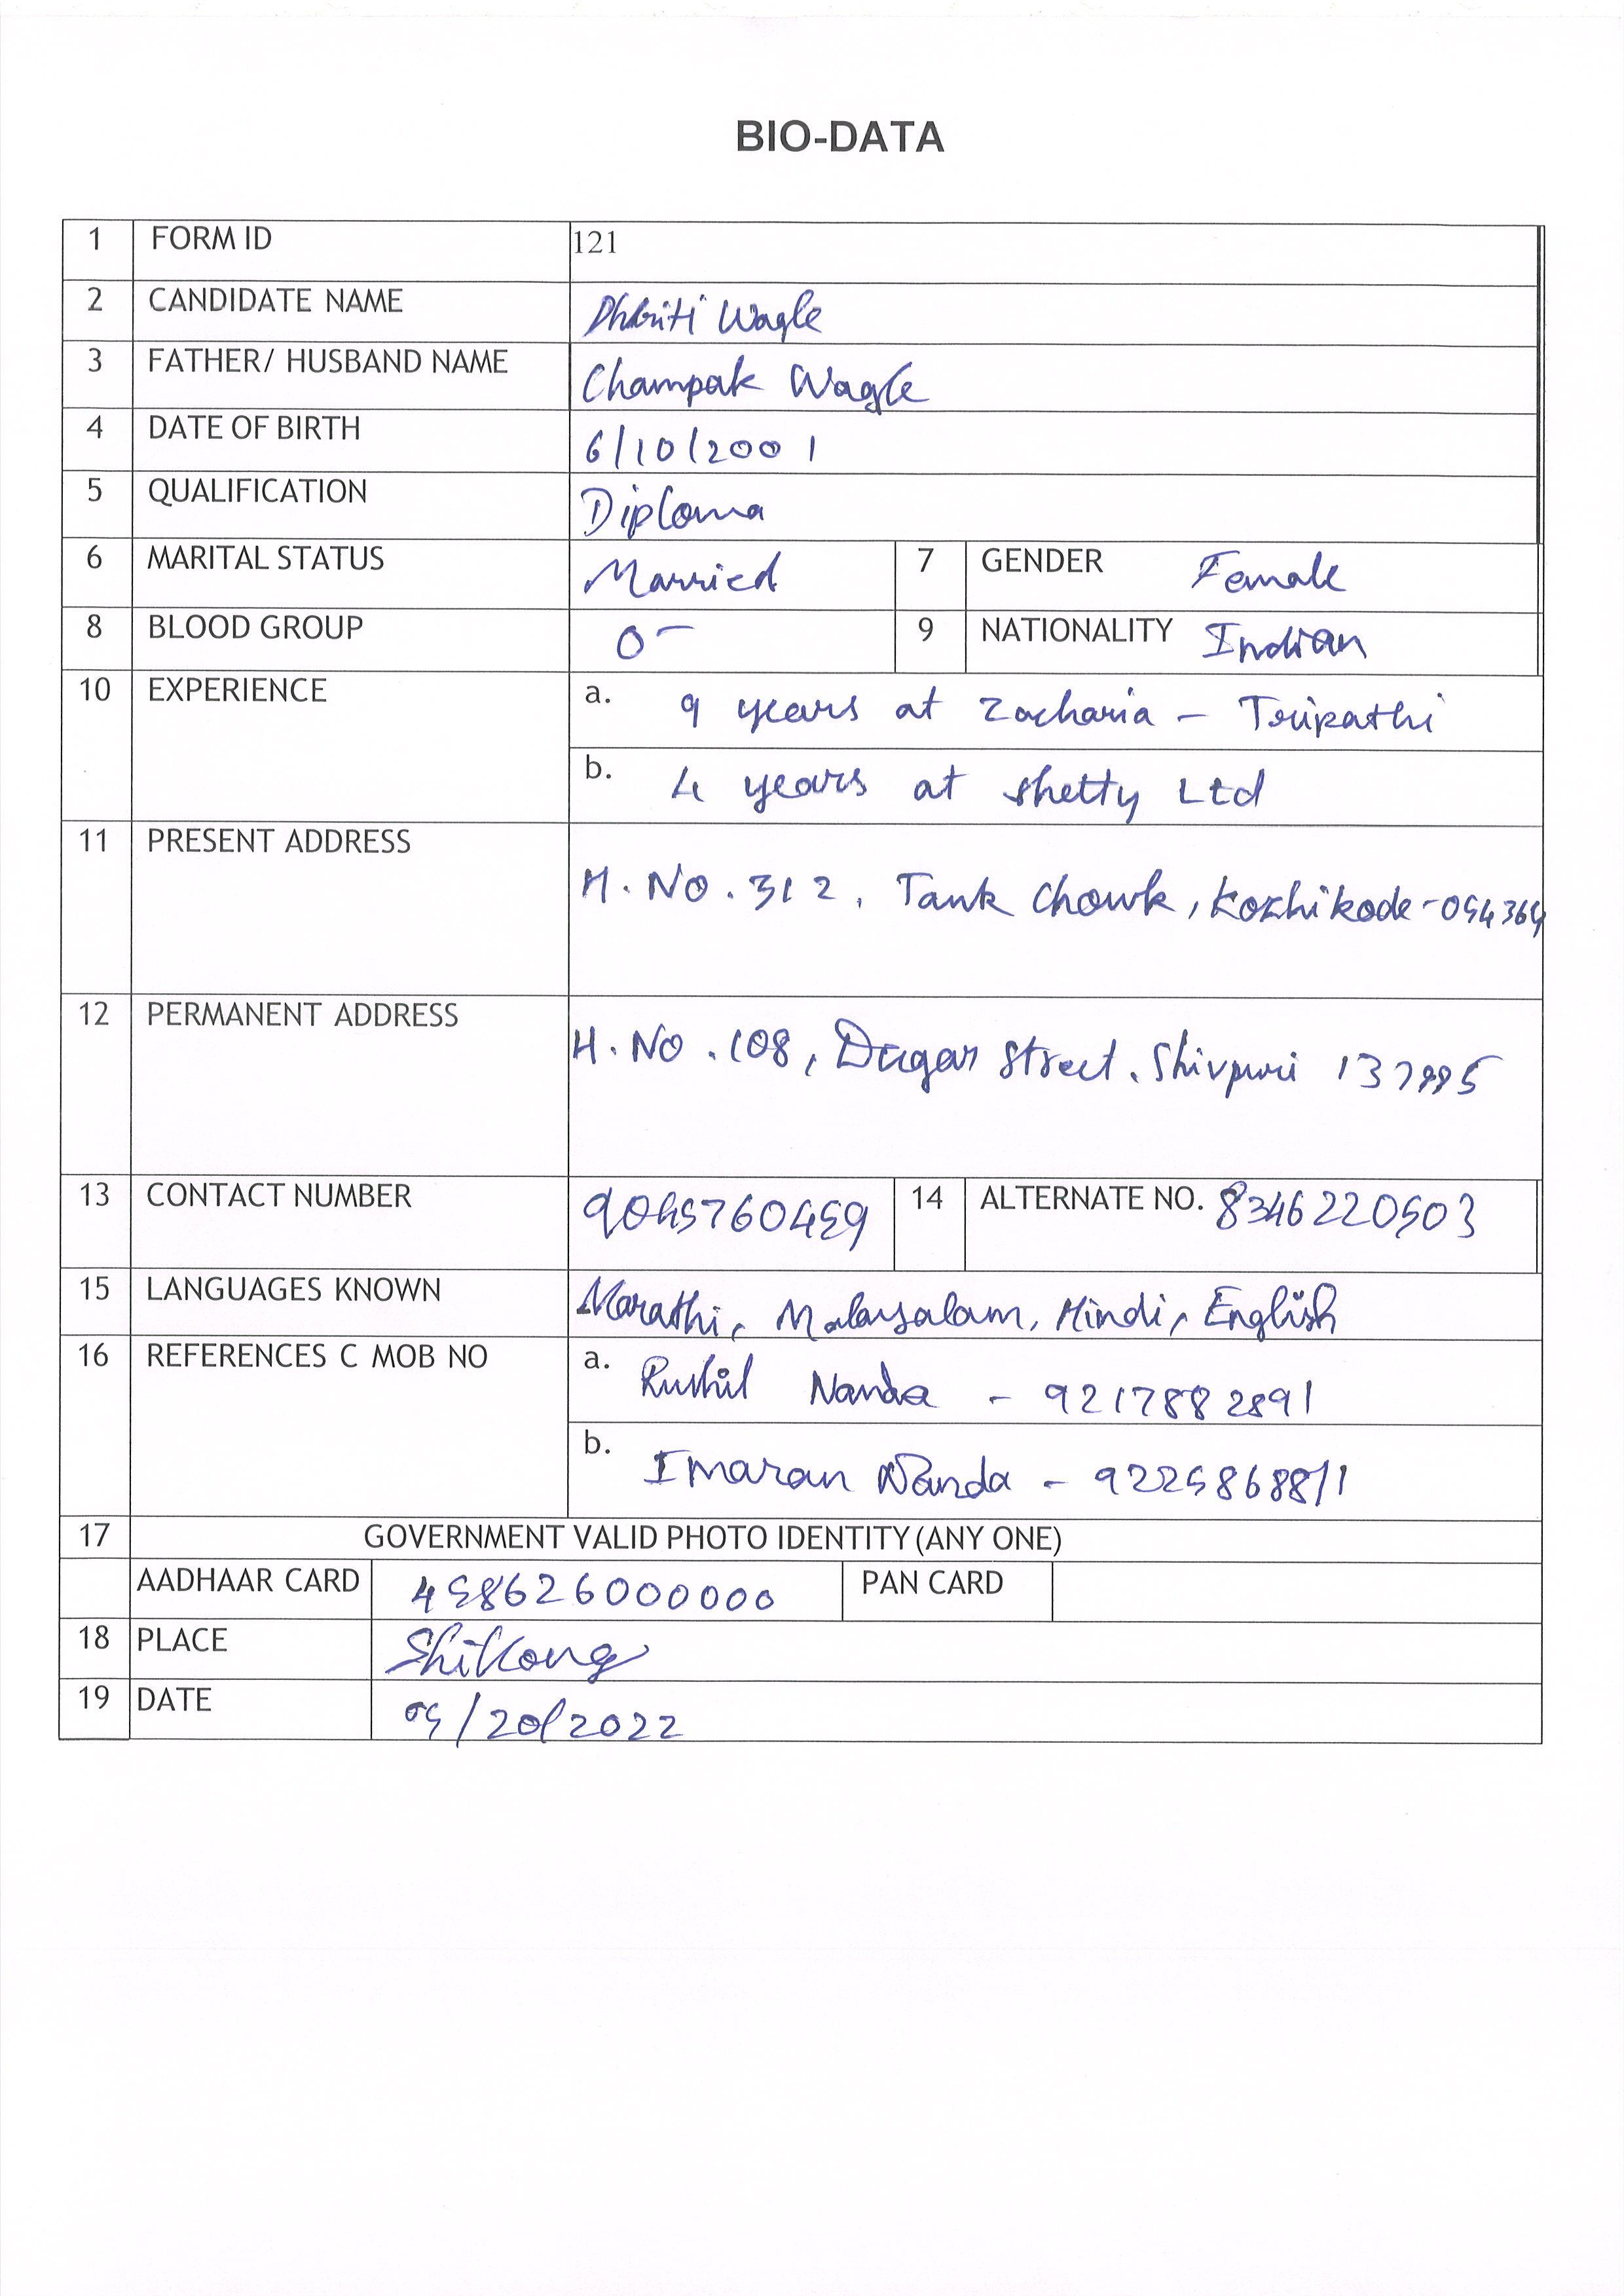 BIO-DATA
1 FORM ID 121
2 CANDIDATE NAME Dhriti Wagle
3 FATHER/ HUSBAND NAME Champak Wagle
4 DATE OF BIRTH 6/10/2001
5 QUALIFICATION Diploma
6 MARITAL STATUS Married 7 GENDER Female
8 BLOOD GROUP O- 9 NATIONALITY Indian
10 EXPERIENCE a. 9 years at Zacharia - Tripathi
b. 4 years at Shetty Ltd
11 PRESENT ADDRESS
H. No. 312, Tank Chowk, Kozhikode -
12 PERMANENT ADDRESS
H. No. 108, Dugar Street, Shivpuri
13 CONTACT NUMBER 14 ALTERNATE NO. 8346220503
15 LANGUAGES KNOWN Marathi, Malaysalam, Hindi, English
16 REFERENCES C MOB NO a. Rushil Nanda - 9217882891
b. Imaran Nanda - 9225868811
17 GOVERNMENT VALID PHOTO IDENTITY (ANY ONE)
AADHAAR CARD 458626000000 PAN CARD
18 PLACE Shillong
19 DATE 05/20/2022